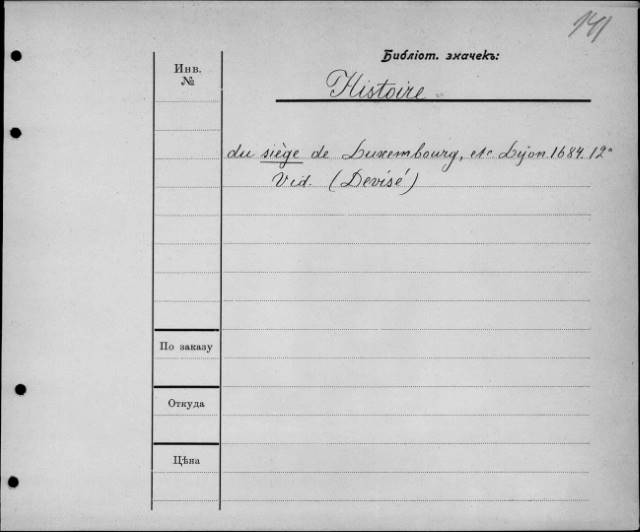 141
Библіот. значекъ:
Инв.
№
Histoire
du siège de Luxembourg, etc Lyon 1684. 12º
Vid. (Devisé)
По заказу
Откуда
Цѣна